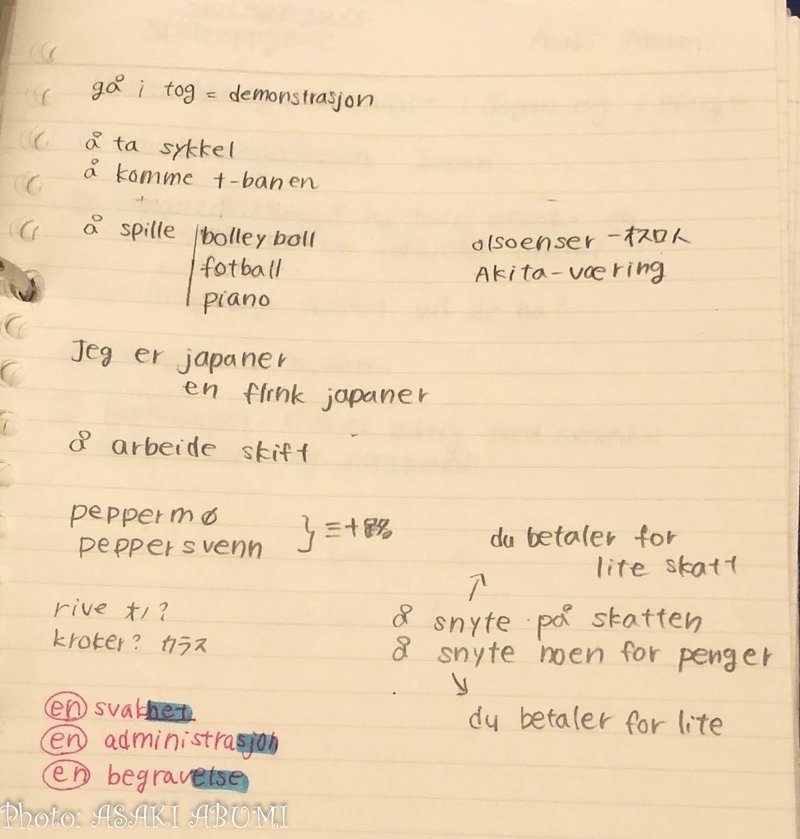 gå i tog = demonstrasjon
å ta sykkel
å komme t-banen
å spille bolleyboll
fotball
piano
olsoenser - オスロ人
Akita-væring
Jeg er japaner
en flink japaner
å arbeide skift
peppermø
peppersvenn
du betaler for
lite skatt
rive オノ?
kroker? カラス
å snyte på skatten
å snyte noen for penger
du betaler for lite
en svakhet
en administrasjon
en begravelse
Photo: ASAKI ABUMI